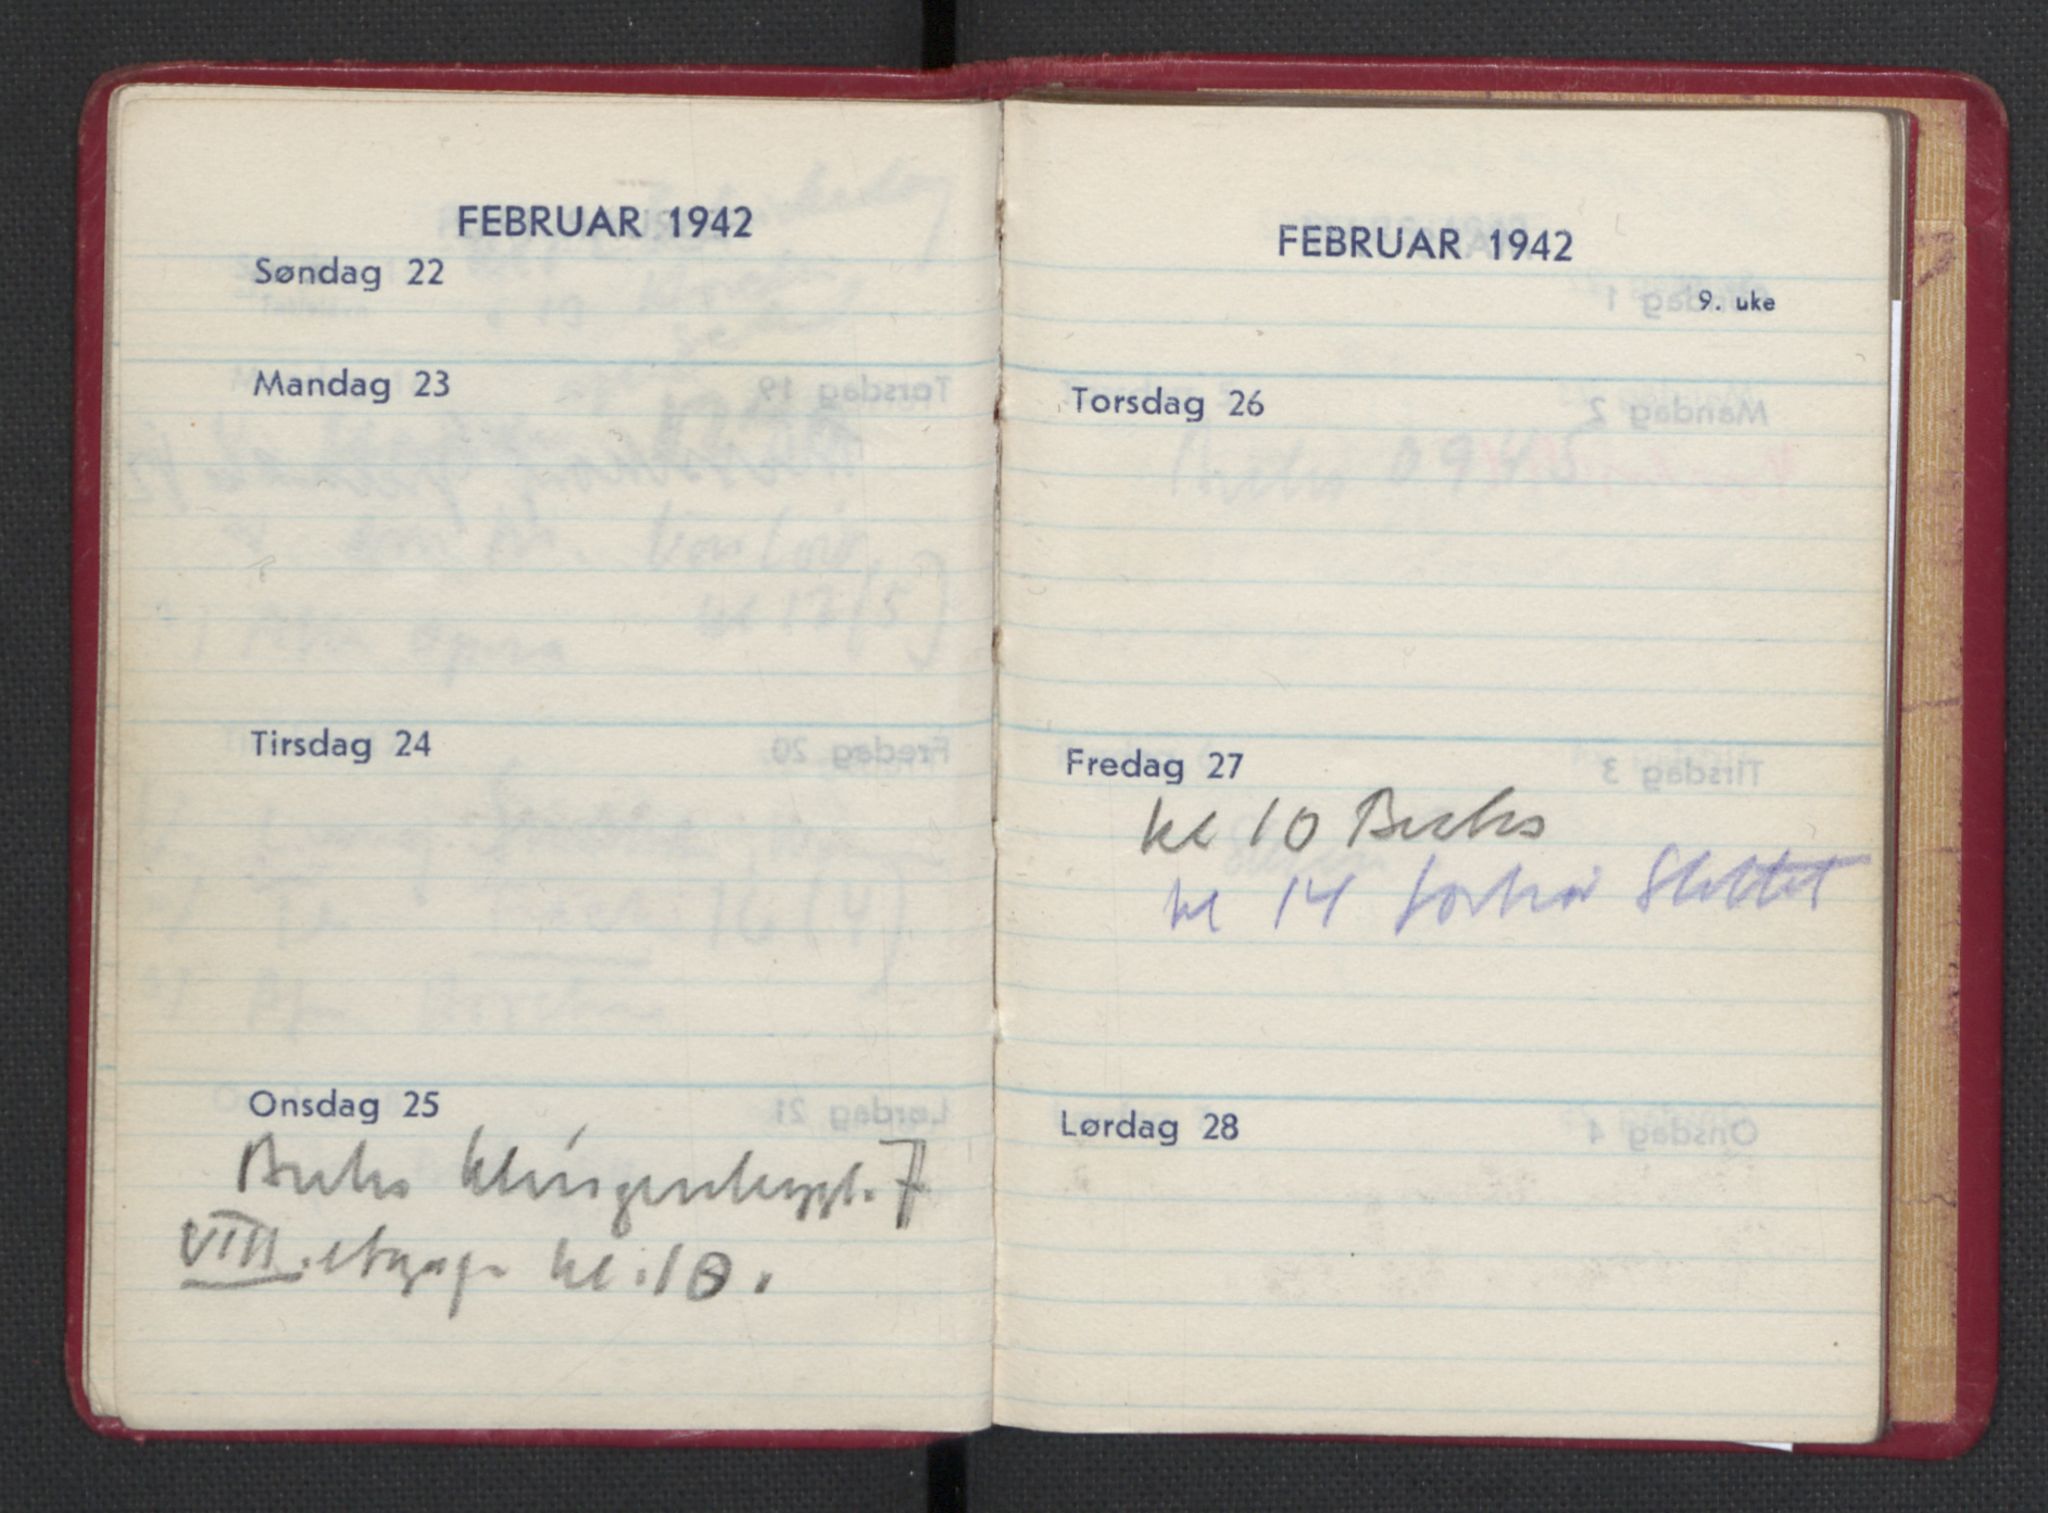 FEBRUAR 1942
Søndag 22
Mandag 23
Tirsdag 24
Onsdag 25
Klingenbergt. 7
VIII. etage kl. 10.
FEBRUAR 1942
9. uke
Torsdag 26
Fredag 27
kl 10
kl 14 forhør Slottet
Lørdag 28